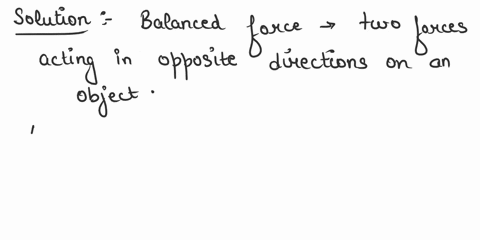 Solution :- Balanced force → two forces
acting in opposite directions on an
object .